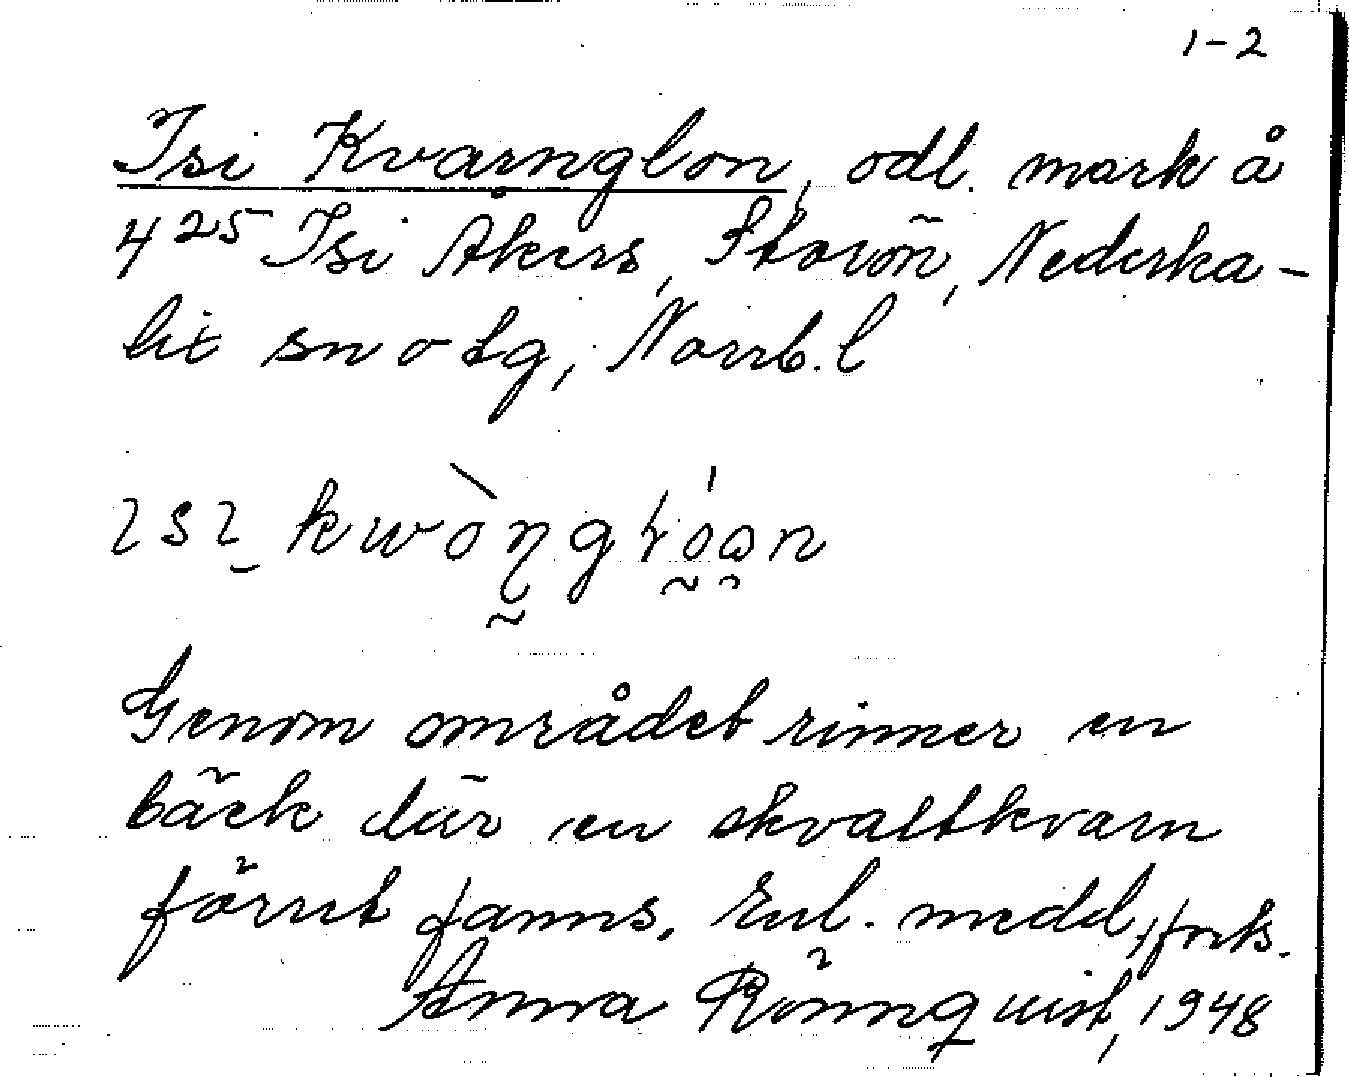 1-2
Isi Kvarnglon, odl. mark å
4²⁵ Isi Åkers, Storön, Nederka-
lix sn o tg, Norrb. l
Genom området rinner en
bäck där en skvaltkvarn
förut fanns. Enl. medd, forts.
Anna Rönnquist, 1948